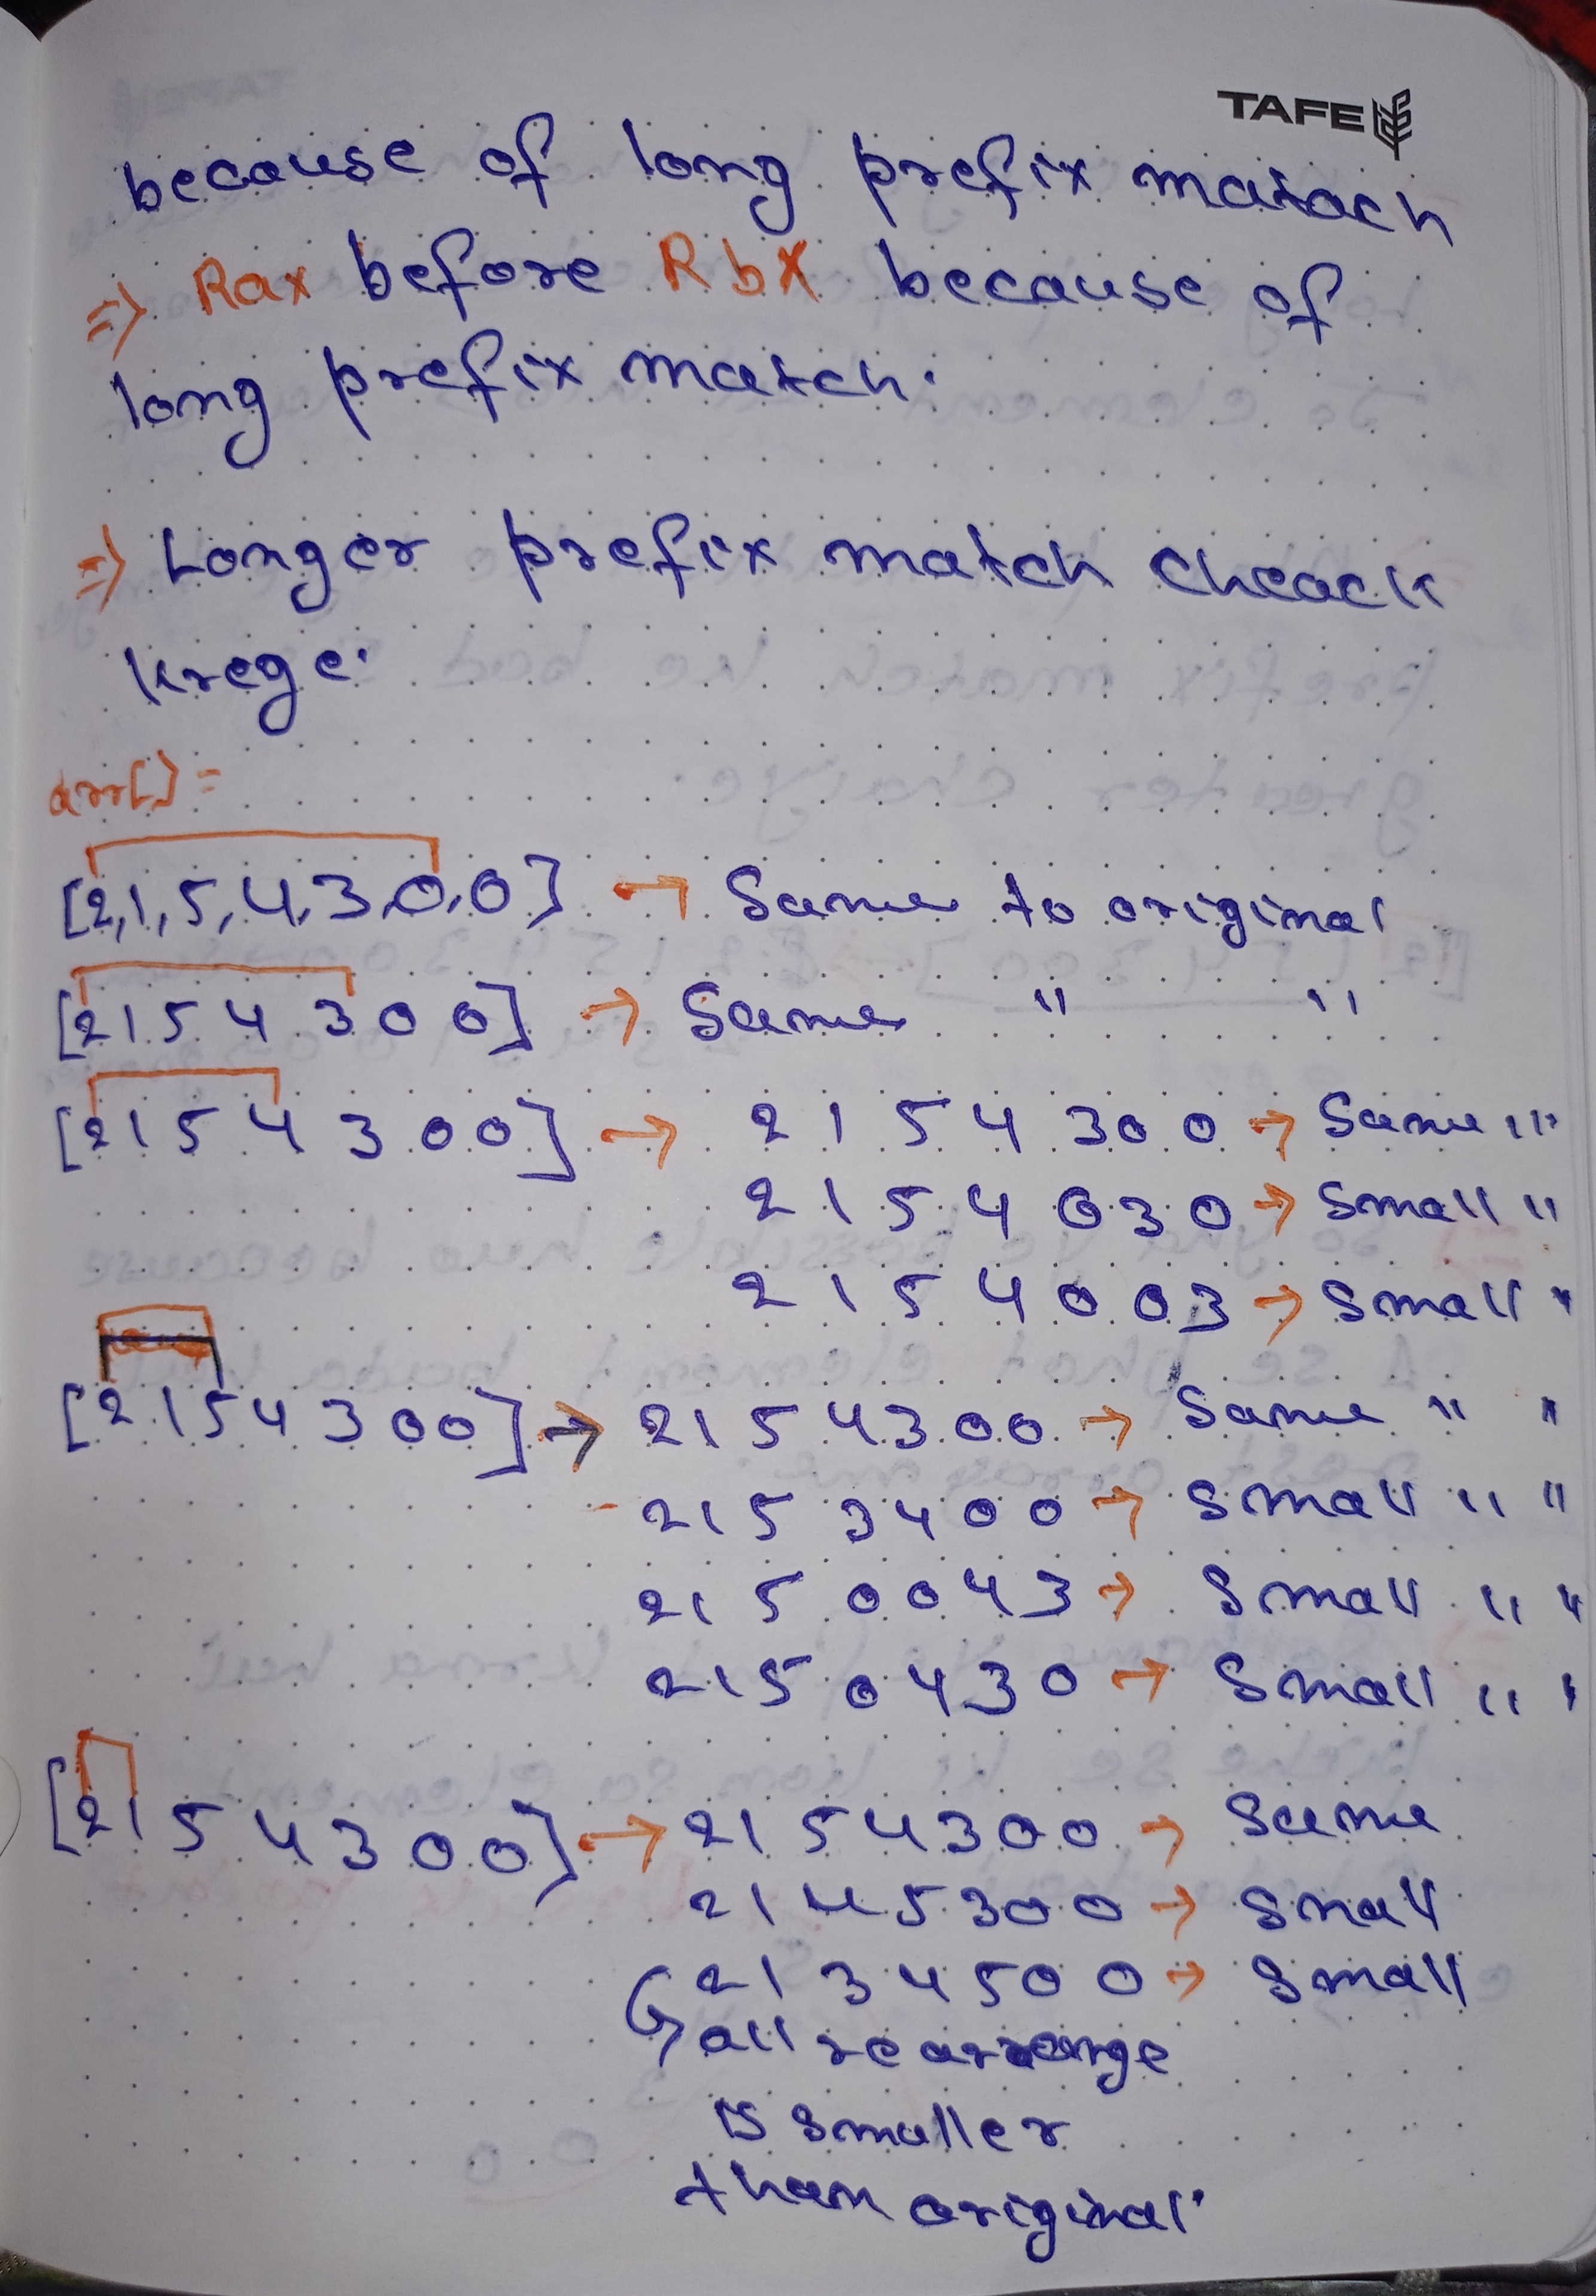 TAFE
because of long prefix matach
=> Rax before Rbx because of
long prefix match.
=> Longer prefix match cheack
krege.
arr[] =
[2,1,5,4,3,0,0] → Same to original
[2 1 5 4 3 0 0] → Same " "
[2 1 5 4 3 0 0] → 2 1 5 4 3 0 0 → Same "
2 1 5 4 0 3 0 → Small "
2 1 5 4 0 0 3 → Small "
[2 1 5 4 3 0 0] → 2 1 5 4 3 0 0 → Same " "
2 1 5 3 4 0 0 → Small " "
2 1 5 0 0 4 3 → Small " "
2 1 5 0 4 3 0 → Small " "
[2 1 5 4 3 0 0] → 2 1 5 4 3 0 0 → Same
2 1 4 5 3 0 0 → Small
2 1 3 4 5 0 0 → Small
all rearrange
is smaller
than original.